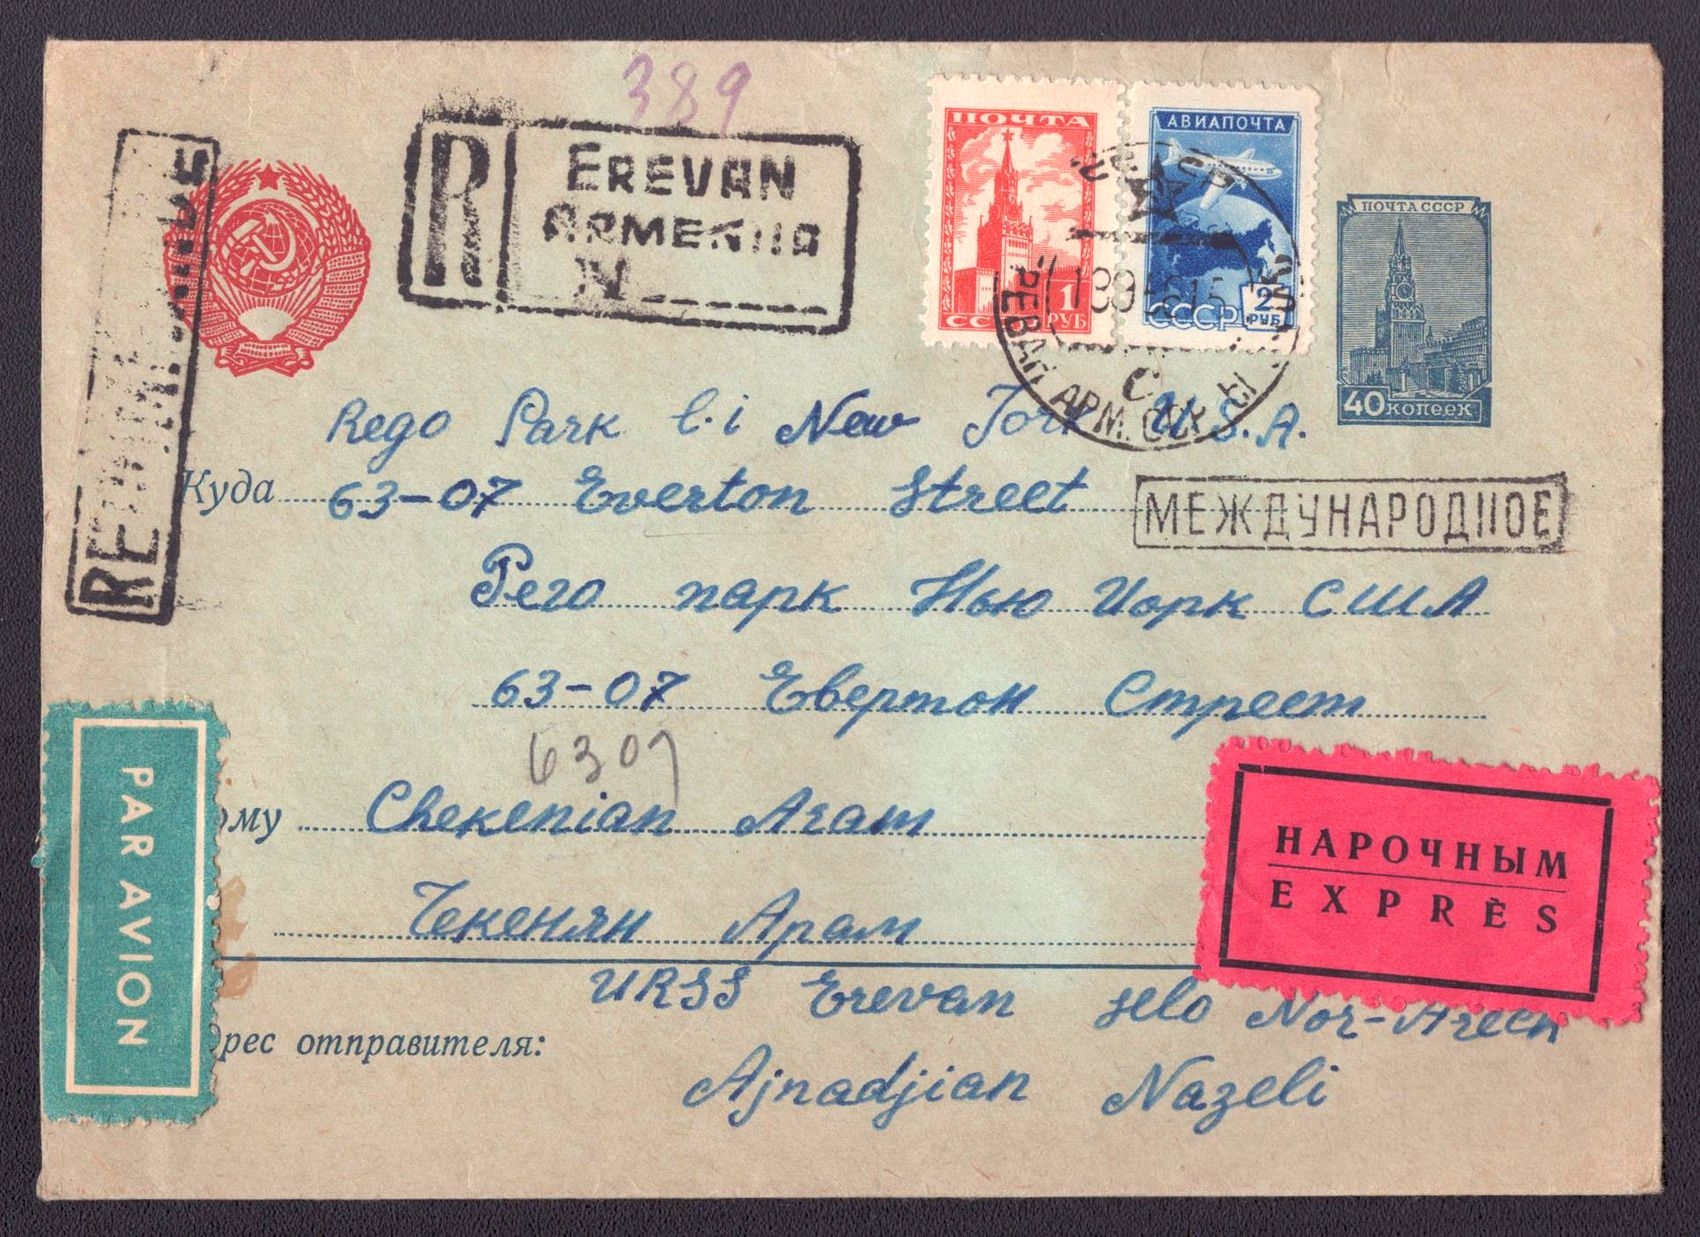 389
R EREVAN
ARMENIIA
N
ПОЧТА
1
РУБ
СССР
АВИАПОЧТА
2
РУБ
СССР
ПОЧТА СССР
40 копеек
АРМ. ССР
Rego Park l.i New Jork U.S.A.
Куда 63-07 Everton Street
МЕЖДУНАРОДНОЕ
Рего парк Нью Иорк США
63-07 Евертон Стреет
6307
ому Chekenian Aram
Чекенян Арам
PAR AVION
НАРОЧНЫМ
EXPRÈS
URSS Erevan selo Nor-Arech
дрес отправителя:
Ajnadjian Nazeli